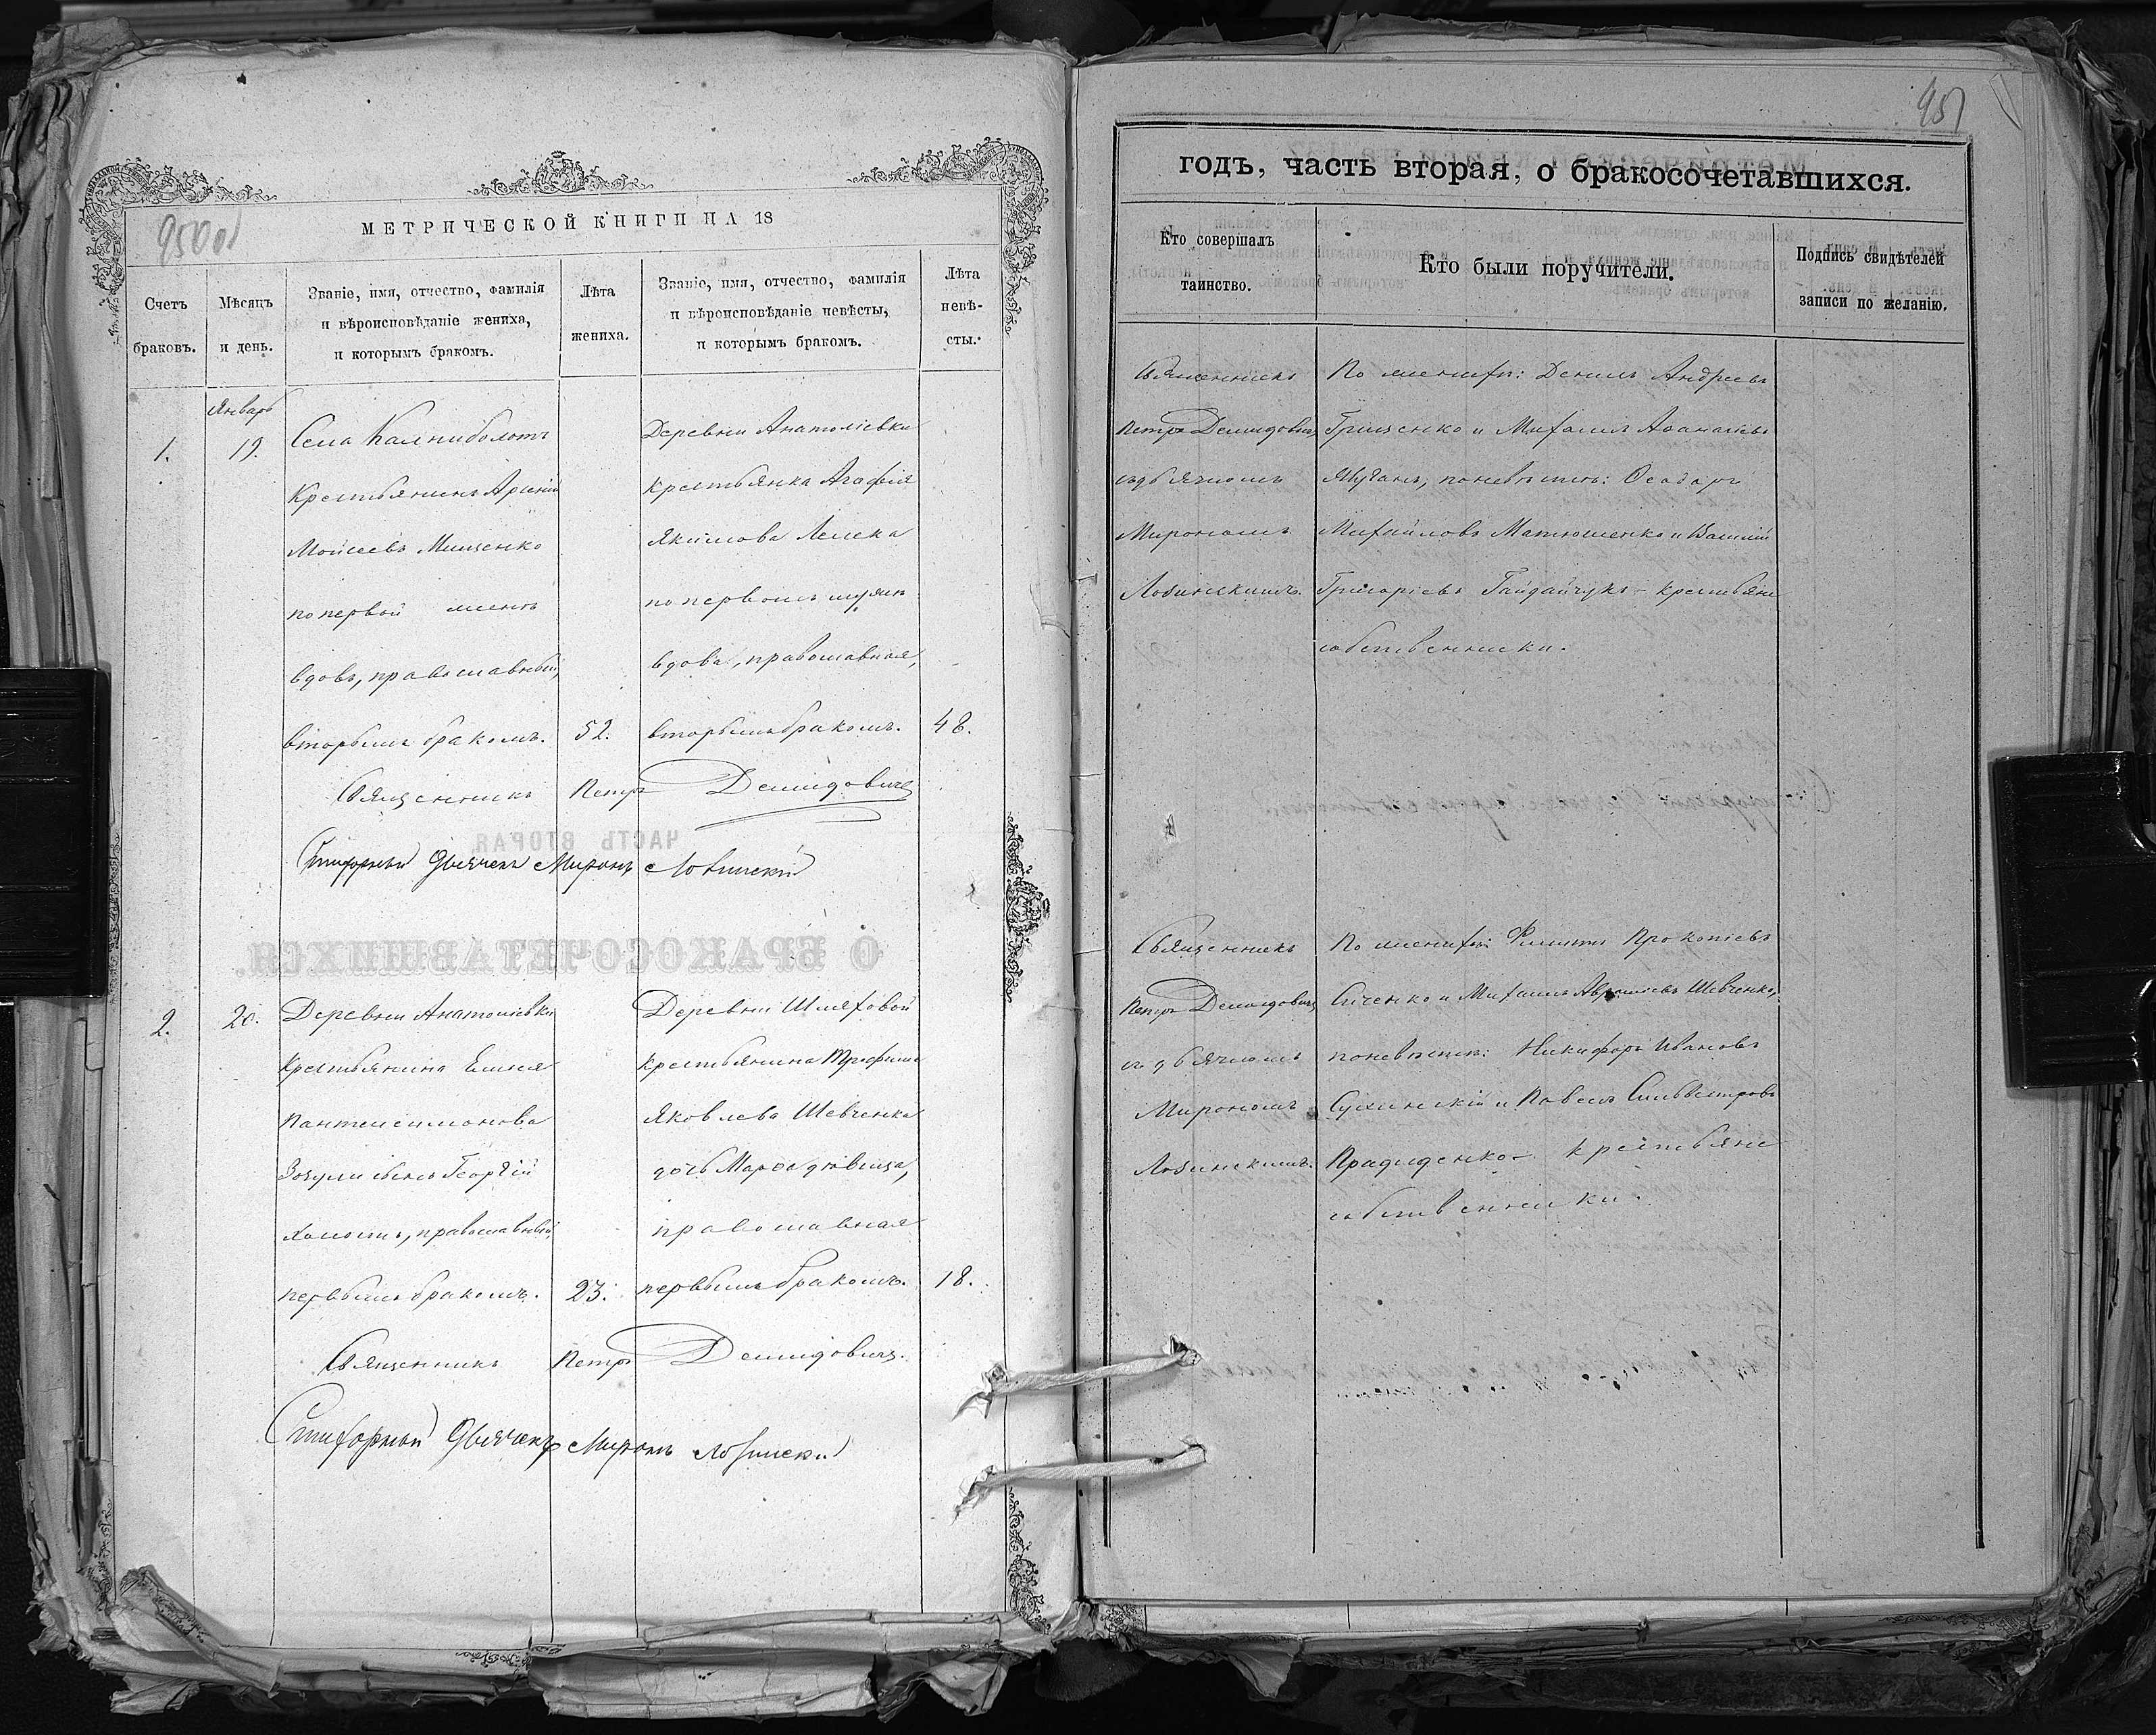 950 об
МЕТРИЧЕСКОЙ КНИГИ НА 18
Счетъ
браковъ.
Мѣсяцъ
и день.
Званіе, имя, отчество, фамилія
и вѣроисповѣданіе жениха,
и которымъ бракомъ.
Лѣта
жениха.
Званіе, имя, отчество, фамилія
и вѣроисповѣданіе невѣсты,
и которымъ бракомъ.
Лѣта
невѣ-
сты.
Январь
1.
19.
Села Калниболотъ
Крестьянинъ Арсеній
Моисеевъ Мищенко
по первой женѣ
вдовъ, православный,
вторымъ бракомъ.
52.
Деревни Анатоліевки
Крестьянка Агафія
Якимова
по первомъ мужѣ
вдова, православная,
вторымъ бракомъ.
48.
Священникъ Петръ Демидовичъ
Дьячекъ Миронъ Лозинскій
2.
20.
Деревни Анатоліевки
Крестьянина Елисея
Пантелеимонова
Зозули сынъ Георгій
холостъ, православный,
первымъ бракомъ.
23.
Деревни Шляховой
Крестьянина Трофима
Яковлева Шевченка
дочь Марѳа дѣвица,
православная
первымъ бракомъ.
18.
Священникъ Петръ Демидовичъ.
Дьячекъ Миронъ Лозинскій
951
годъ, часть вторая, о бракосочетавшихся.
Кто совершалъ
таинство.
Кто были поручители.
Подпись свидѣтелей
записи по желанію.
Священникъ
Петръ Демидовичъ
съ дьячкомъ
Мирономъ
Лозинскимъ.
По женихѣ: Даніилъ Андреевъ
Грищенко и Михаилъ Аѳанасіевъ
по невѣстѣ: Ѳеодоръ
Михайловъ Матюшенко и Василій
Григоріевъ Гайдайчукъ - крестьяне
собственники.
Священникъ
Петръ Демидовичъ
съ дьячкомъ
Мирономъ
Лозинскимъ.
По женихѣ: Филиппъ Прокопіевъ
и Михаилъ Шевченко,
по невѣстѣ: Никифоръ Ивановъ
и Павелъ Сильвестровъ
крестьяне
собственники.